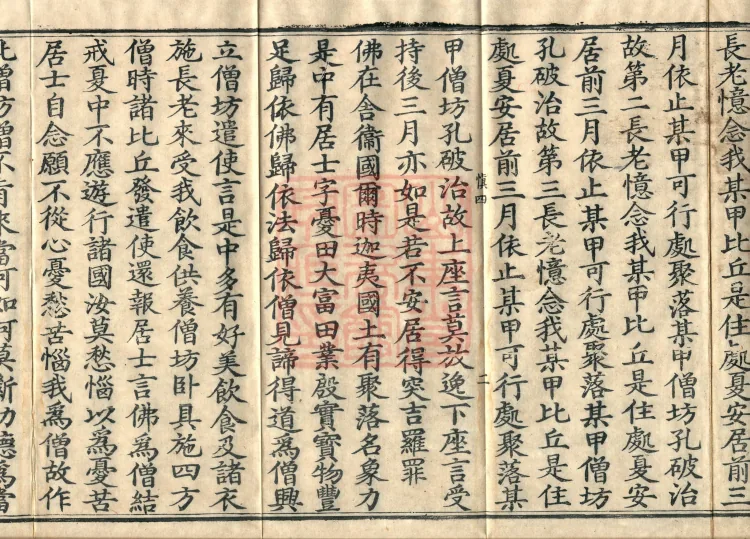 長老憶念我某甲比丘是住處夏安居前三
月依止某甲可行處聚落某甲僧坊孔破治
故第二長老憶念我某甲比丘是住處夏安
居前三月依止某甲可行處聚落某甲僧坊
孔破治故第三長老憶念我某甲比丘是住
處夏安居前三月依止某甲可行處聚落某
慎四
二
甲僧坊孔破治故上座言莫放逸下座言受
持後三月亦如是若不安居得突吉羅罪
佛在舍衞國爾時迦夷國土有聚落名象力
是中有居士字憂田大富田業殷實寳物豐
足歸依佛歸依法歸依僧見諦得道爲僧興
立僧坊遣使言是中多有好美飲食及諸衣
施長老來受我飲食供養僧坊卧具施四方
僧時諸比丘發遣使還報居士言佛爲僧結
戒夏中不應遊行諸國汝莫愁惱以爲憂苦
居士自念願不從心憂愁苦惱我爲僧故作
此僧坊僧不肯來當可如何莫斷功德爲當